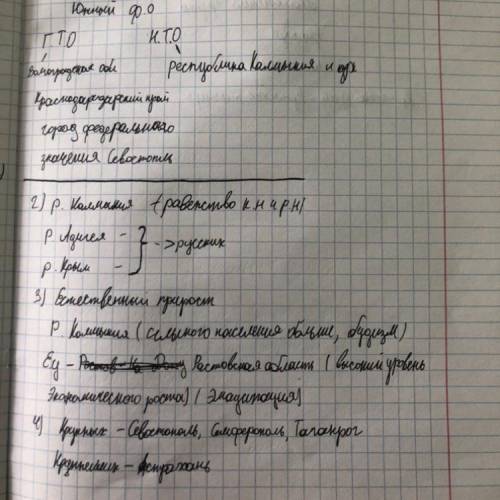 Южный ф.о
Г.Т.О Н.Т.О
Волгоградская обл республика Калмыкия и
Краснодарадарский край
город федерального
значения Севастополь
2) р. Калмыкия (равенство к.н и р.н)
Р. Адигея -
р. Крым - } -> русских
3) Естественный прирост
Р. Калмыкия ( сельского населения больше, будизм)
Ец - Ростов-На-Дону Ростовская область ( высокий уровень
Экономического роста) (
4) Крупных - Севастополь, Симферополь, Таганрог
Крупнейших - Астрахань